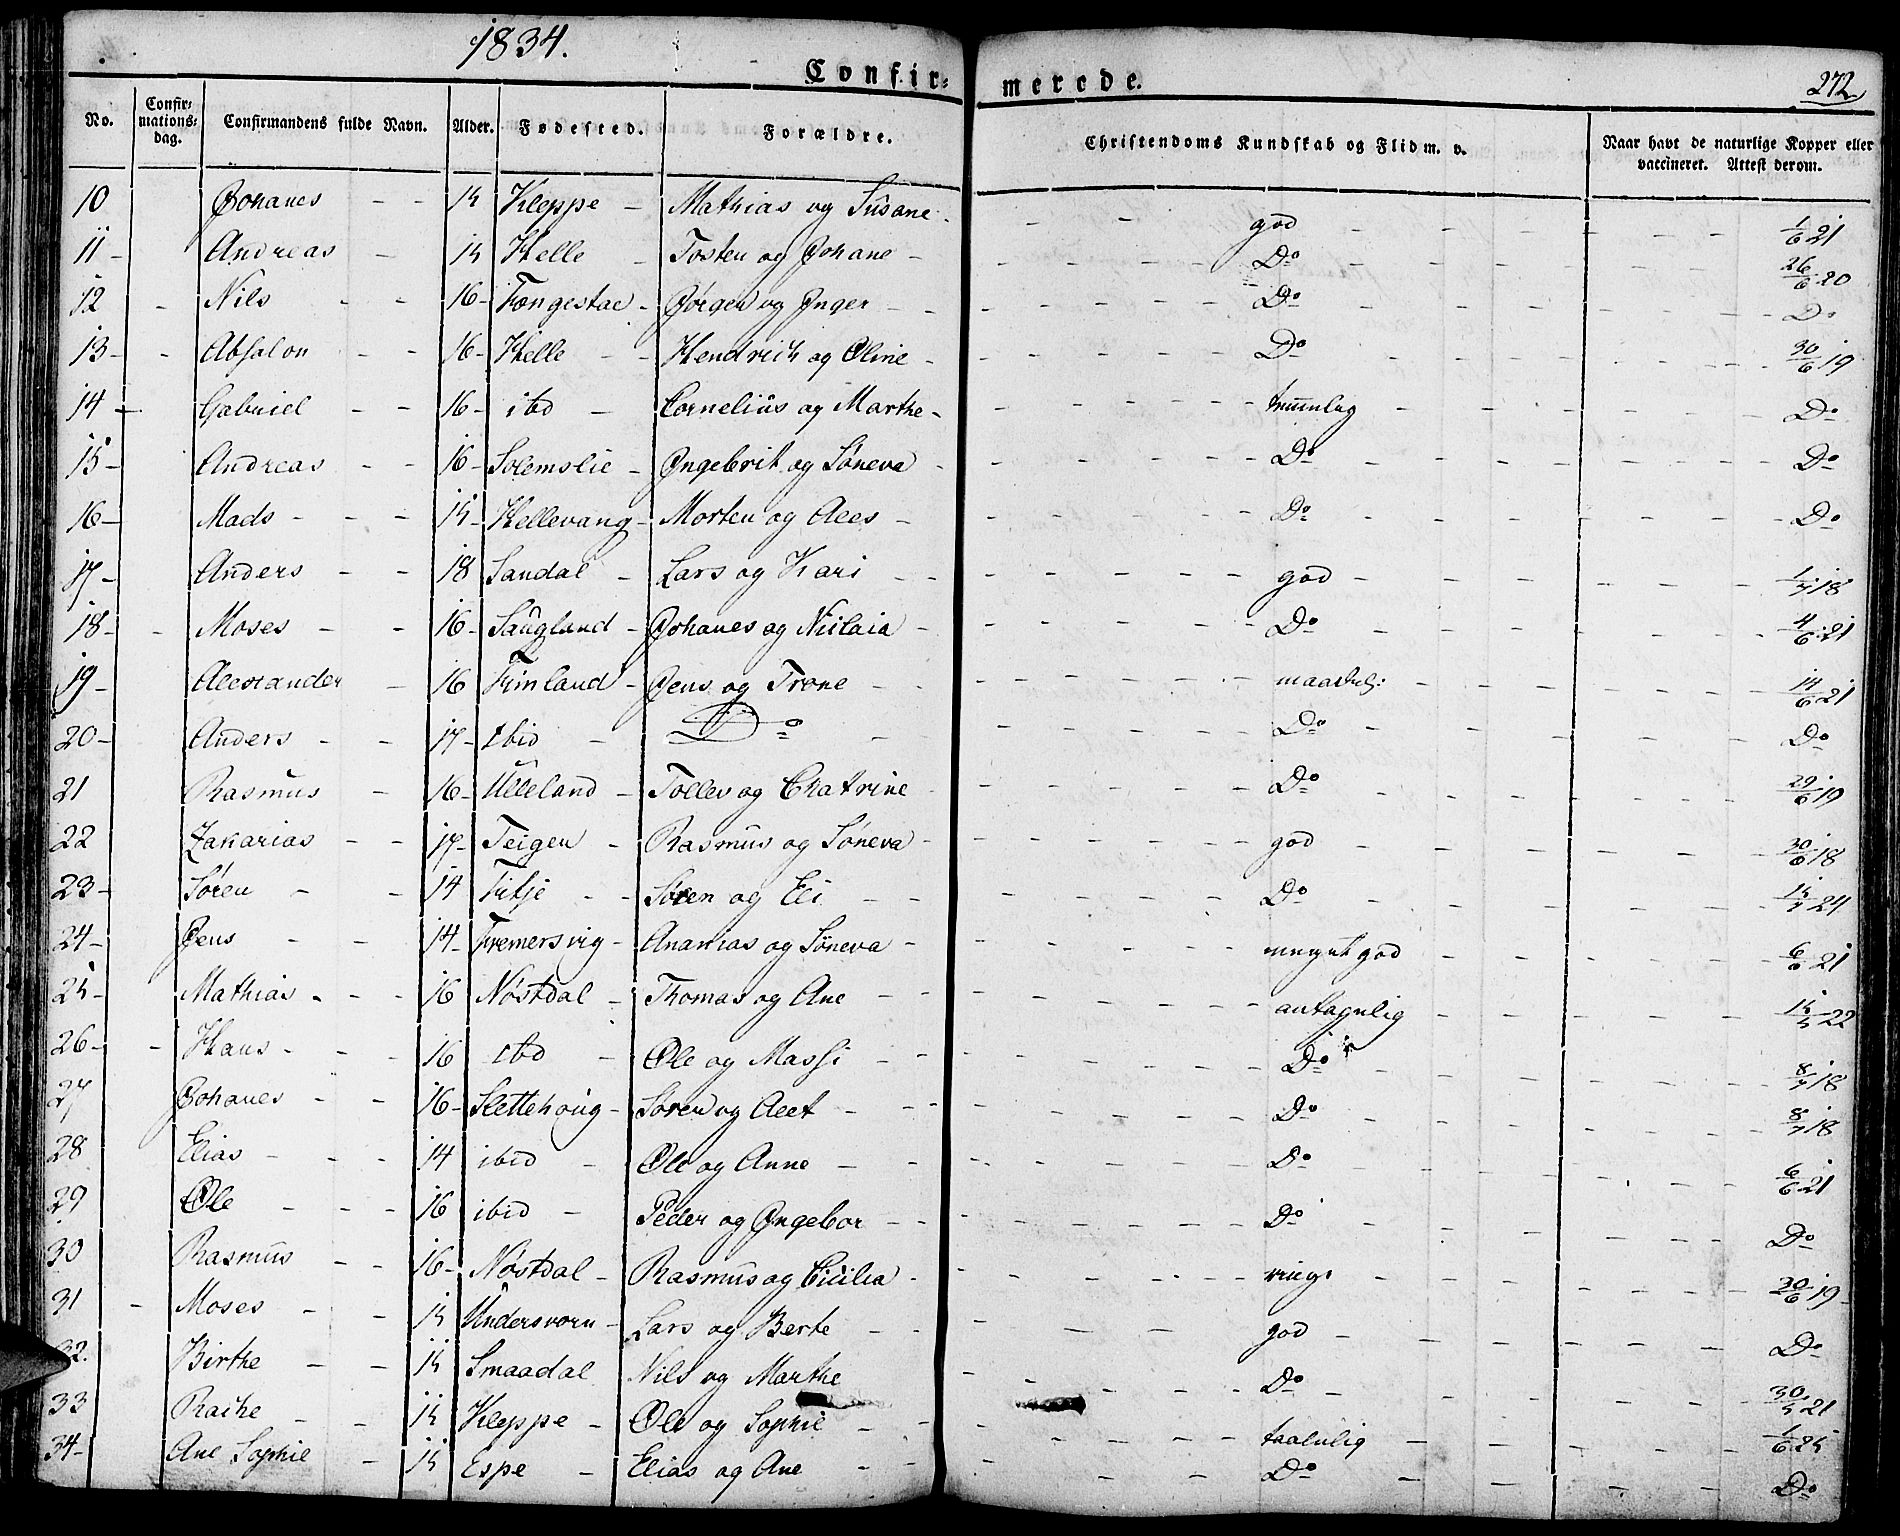 1834.
Confir= merede.
272
No. Confir=mations=dag. Confirmandens fulde Navn. Alder. Fødested. Forældre. Christendoms Kundskab og Flid m. v. Naar havt de naturlige Kopper eller vaccineret. Attest derom.
10 Johanes - - 15 Kleppe - Mathias og Susane - god 1/6 21
11 - Andreas - 15 Helle - Tosten og Johane - Do 26/6 20
12 - Nils - - 16 - Tongestae - Jørgen og Inger - Do Do
13 - Absalon - - 16 - Helle - Hendrich og Oline - Do 30/6 19
14 - Gabriel - - 16 - ibd - Cornelius og Marthe - temmlig Do
15 - Andreas - - 16 - Solemslie - Ingebrit og Søneva - Do Do
16 - Mads - - - 15 - Hellevang - Morten og Aees - Do Do
17 - Anders - - 18 Sandal - Lars og Kari - god 1/7 18
18 - Moses - - 16 - Saugland - Johanes og Niclaia - Do 4/6 21
19 - Alexander - 16 Fimland - Jens og Trone - maadel: 14/6 21
20 - Anders - - 17 - Ibid - Do - Do Do
21 Rasmus - 16 - Ulleland - Tollev og Chatrine - Do 29/6 19
22 Zakarias - - 17 - Teigen - Rasmus og Søneva - god 30/6 18
23 - Søren - - 14 Fitje - - Søren og Eli - Do 15/7 24
24 - Jens - - 14 - Fremersvig - Ananias og Søneva - meget god 6/6 21
25 - Mathias - - - 16 Nøstdal - Thomas og Ane - antagelig 15/5 22
26 - Hans - - - 16 ibd - Ole og Massi - Do 8/7 18
27 Johanes - - 16 - Slettehoug - Søren og Aeet - Do 8/7 18
28 Elias - - - 14 ibid - Ole og Anne - Do 6/6 21
29 Ole - - - 16 ibid - Peder og Ingebor - Do Do
30 Rasmus - - 16 - Nøstdal - Rasmus og Cicilia - ring: 30/6 19
31 - Moses - - 15 Undersvorn - Lars og Berte - god Do
32. Birthe - - 15 Smaadal Nils og Marthe Do 30/5 21
33 Rache - - 15 Kleppe - Ole og Sophie - taalelig 1/6 25
34 - Ane Sophie - 15 Espe - Elias og Ane - Do Do